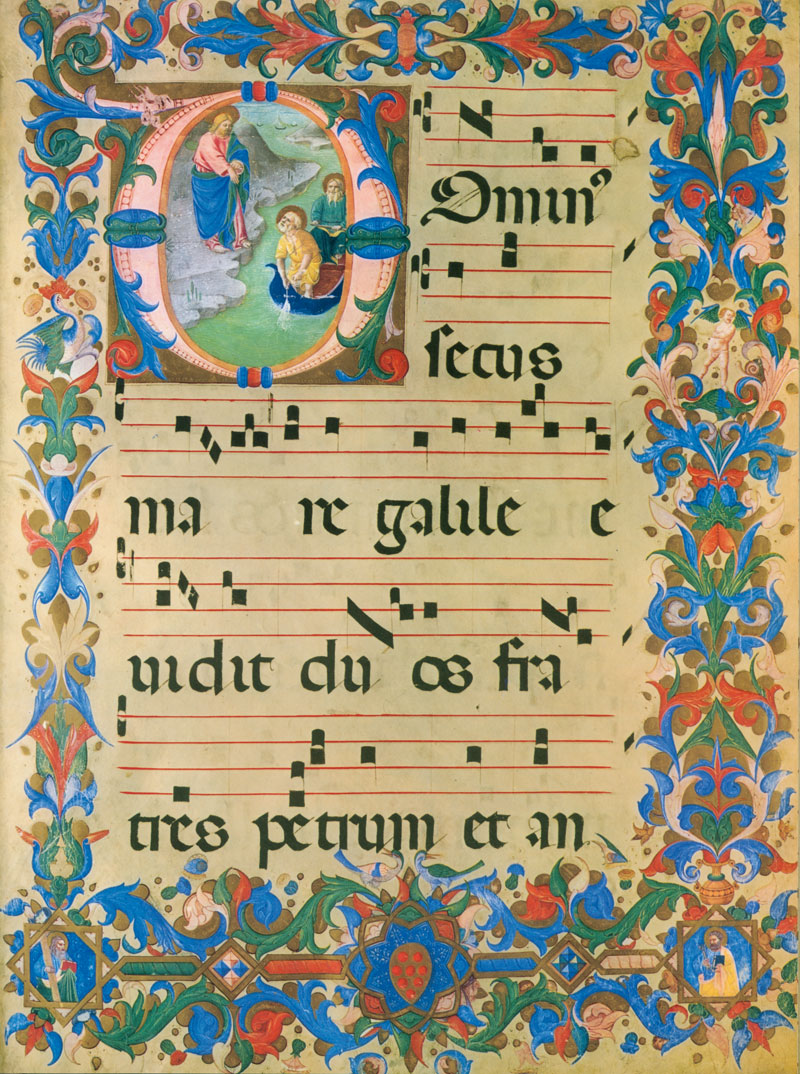 DOminꝰ
secus
ma re galile e
uidit du os fra
tres petrum et an